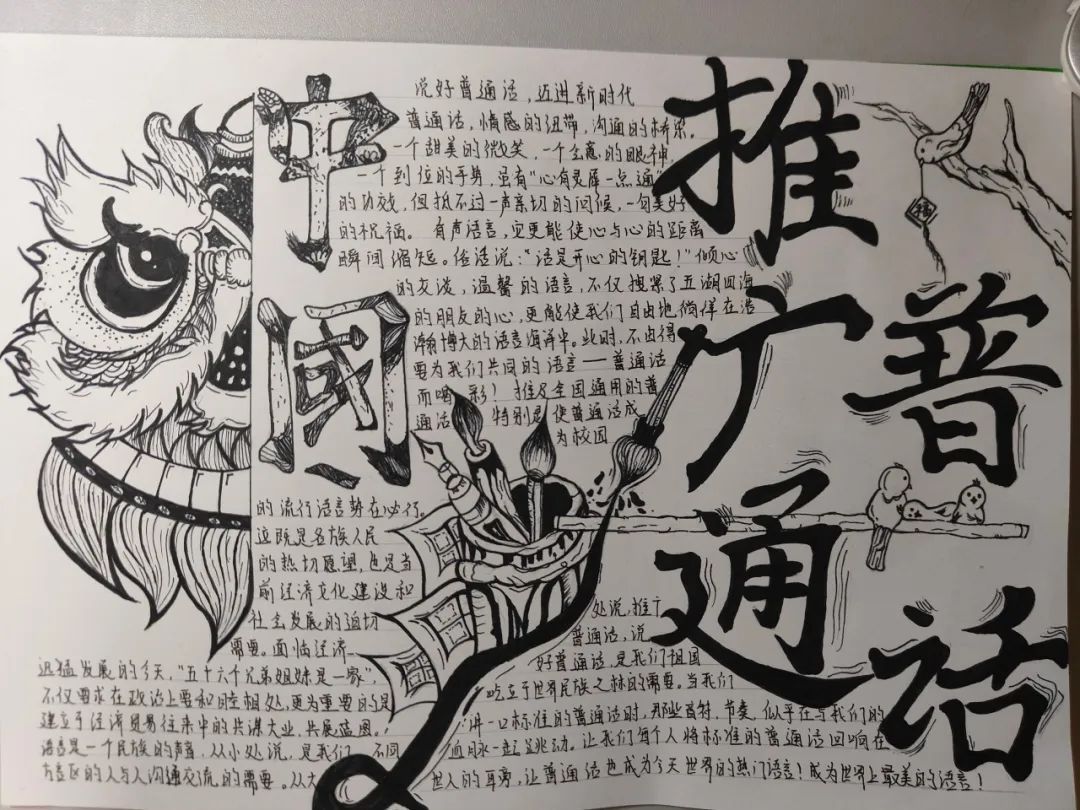 推广普通话
中国
说好普通话，迈进新时代
普通话，情感的纽带，沟通的桥梁。
一个甜美的微笑，一个会意的眼神，
一个到位的手势，虽有“心有灵犀一点通”
的功效，但抵不过一声亲切的问候，一句美好
的祝福。有声语言，更能使心与心的距离
瞬间缩短。俗话说：“话是开心的钥匙！”倾心
的交谈，温馨的语言，不仅搜罗了五湖四海
的朋友的心，更能使我们自由地徜徉在浩
瀚博大的语言海洋中。此时，不由得
要为我们共同的语言——普通话
而喝彩！推及全国通用的普
通话，特别是使普通话成
为校园
的流行语言势在必行。
这既是各族人民
的热切愿望，也是当
前经济文化建设和
社会发展的迫切
需要。面临经济
迅猛发展的今天，“五十六个兄弟姐妹是一家”，
不仅要求在政治上要和睦相处，更为重要的是
建立于经济贸易往来中的共谋大业，共展蓝图。
语言是一个民族的声音，从小处说，是我们不同
方言区的人与人沟通交流的需要。从大
处说，推广
普通话，说
好普通话，是我们祖国
屹立于世界民族之林的需要。当我们
讲一口标准的普通话时，那些音符，节奏，似乎在与我们的
血脉一起跳动。让我们每个人将标准的普通话回响在
世人的耳旁，让普通话也成为今天世界的热门语言！成为世界上最美的语言！
福